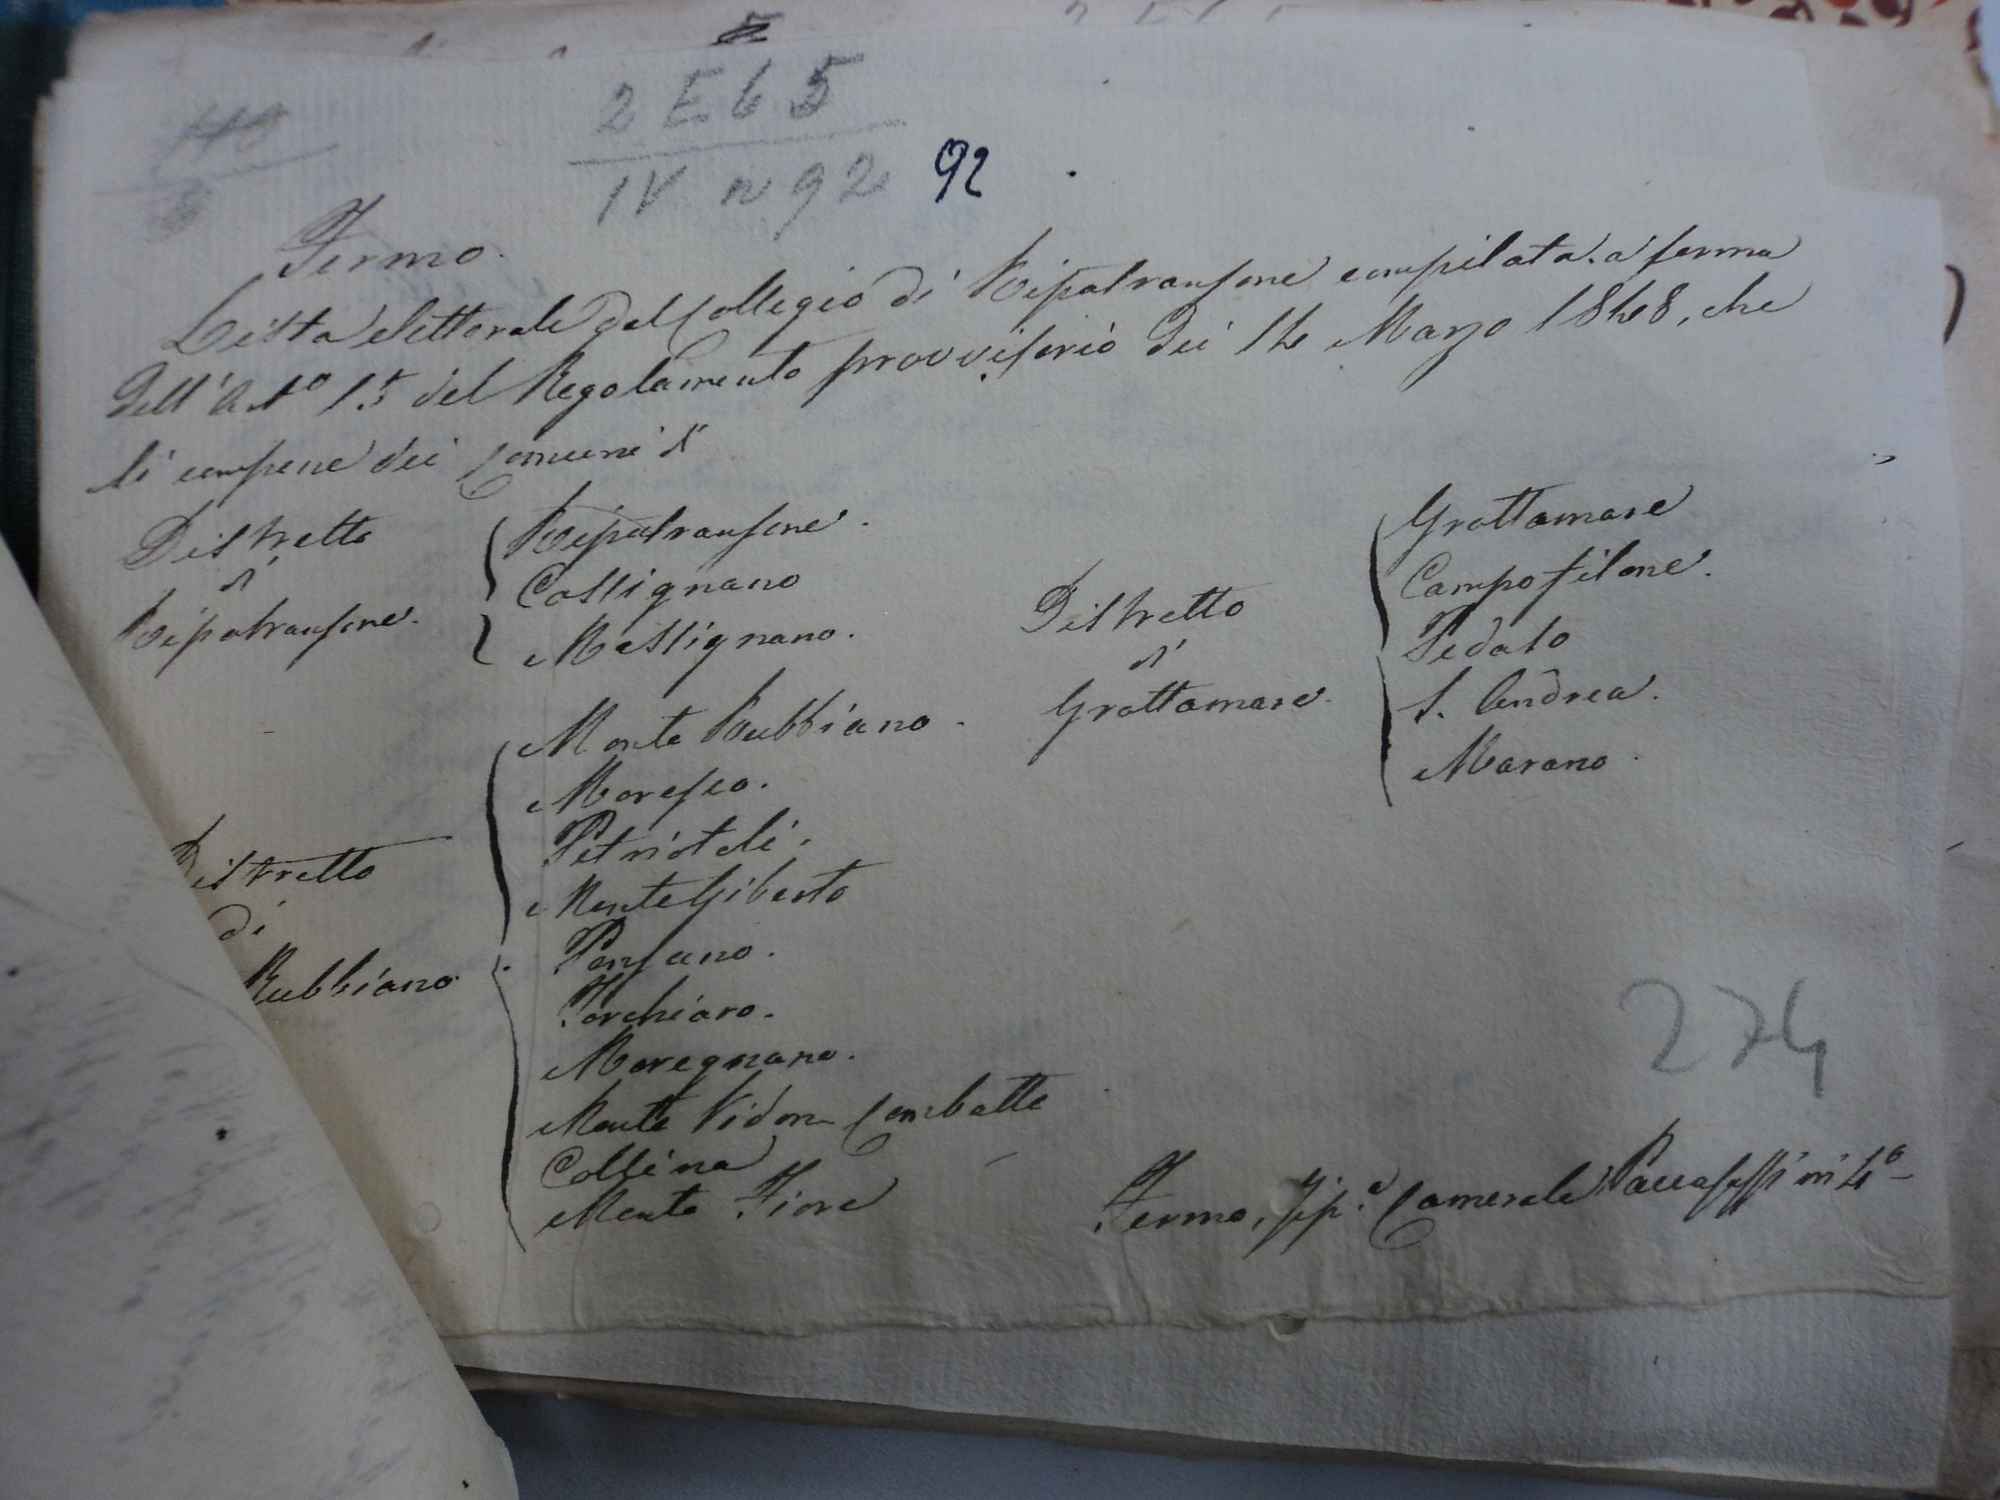 2 E 6 5
IV n 92 92
Fermo.
Lista elettorale del Collegio di Ripatransone compilata a forma
dell'Art.o 15 del Regolamento provvisorio dei 14 Marzo 1848, che
si compone dei Comuni di
Distretto
di
Ripatransone.
Ripatransone.
Cossignano
Massignano.
Distretto
di
Rubbiano
Monte Rubbiano.
Moresco.
Petritoli.
Monte Giberto
Ponzano.
Torchiaro.
Moregnano.
Monte Vidon Combatte
Collina
Monte Fiore
Distretto
di
Grottamare.
Grottamare
Campofilone.
Pedaso
S. Andrea.
Marano.
274
Fermo, Tip.a Camerale Paccasassi in 4.o